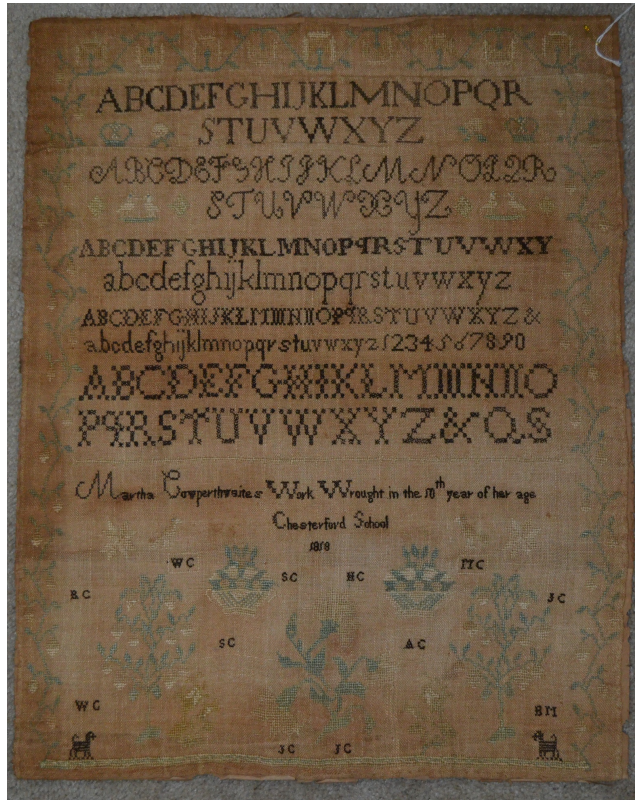 ABCDEFGHIJKLMNOPQR
STUVWXYZ
ABCDEFGHIJKLMNOPQR
STUVWXYZ
ABCDEFGHIJKLMNOPqRSTUVWXY
abcdefghijklmnopqrstuvwxyz
ABCDEFGHIJKLMMNNOPqRSTUVWXYZ&
abcdefghijklmnopqrstuvwxyz1234567890
ABCDEFGHIKLMMNNO
PqRSTUVWXYZ&QS
Martha Cowperthwaites Work Wrought in the 10th year of her age
Chesterford School
1818
WC MC
SC HC
RC JC
SC AC
WC HM
JC JC